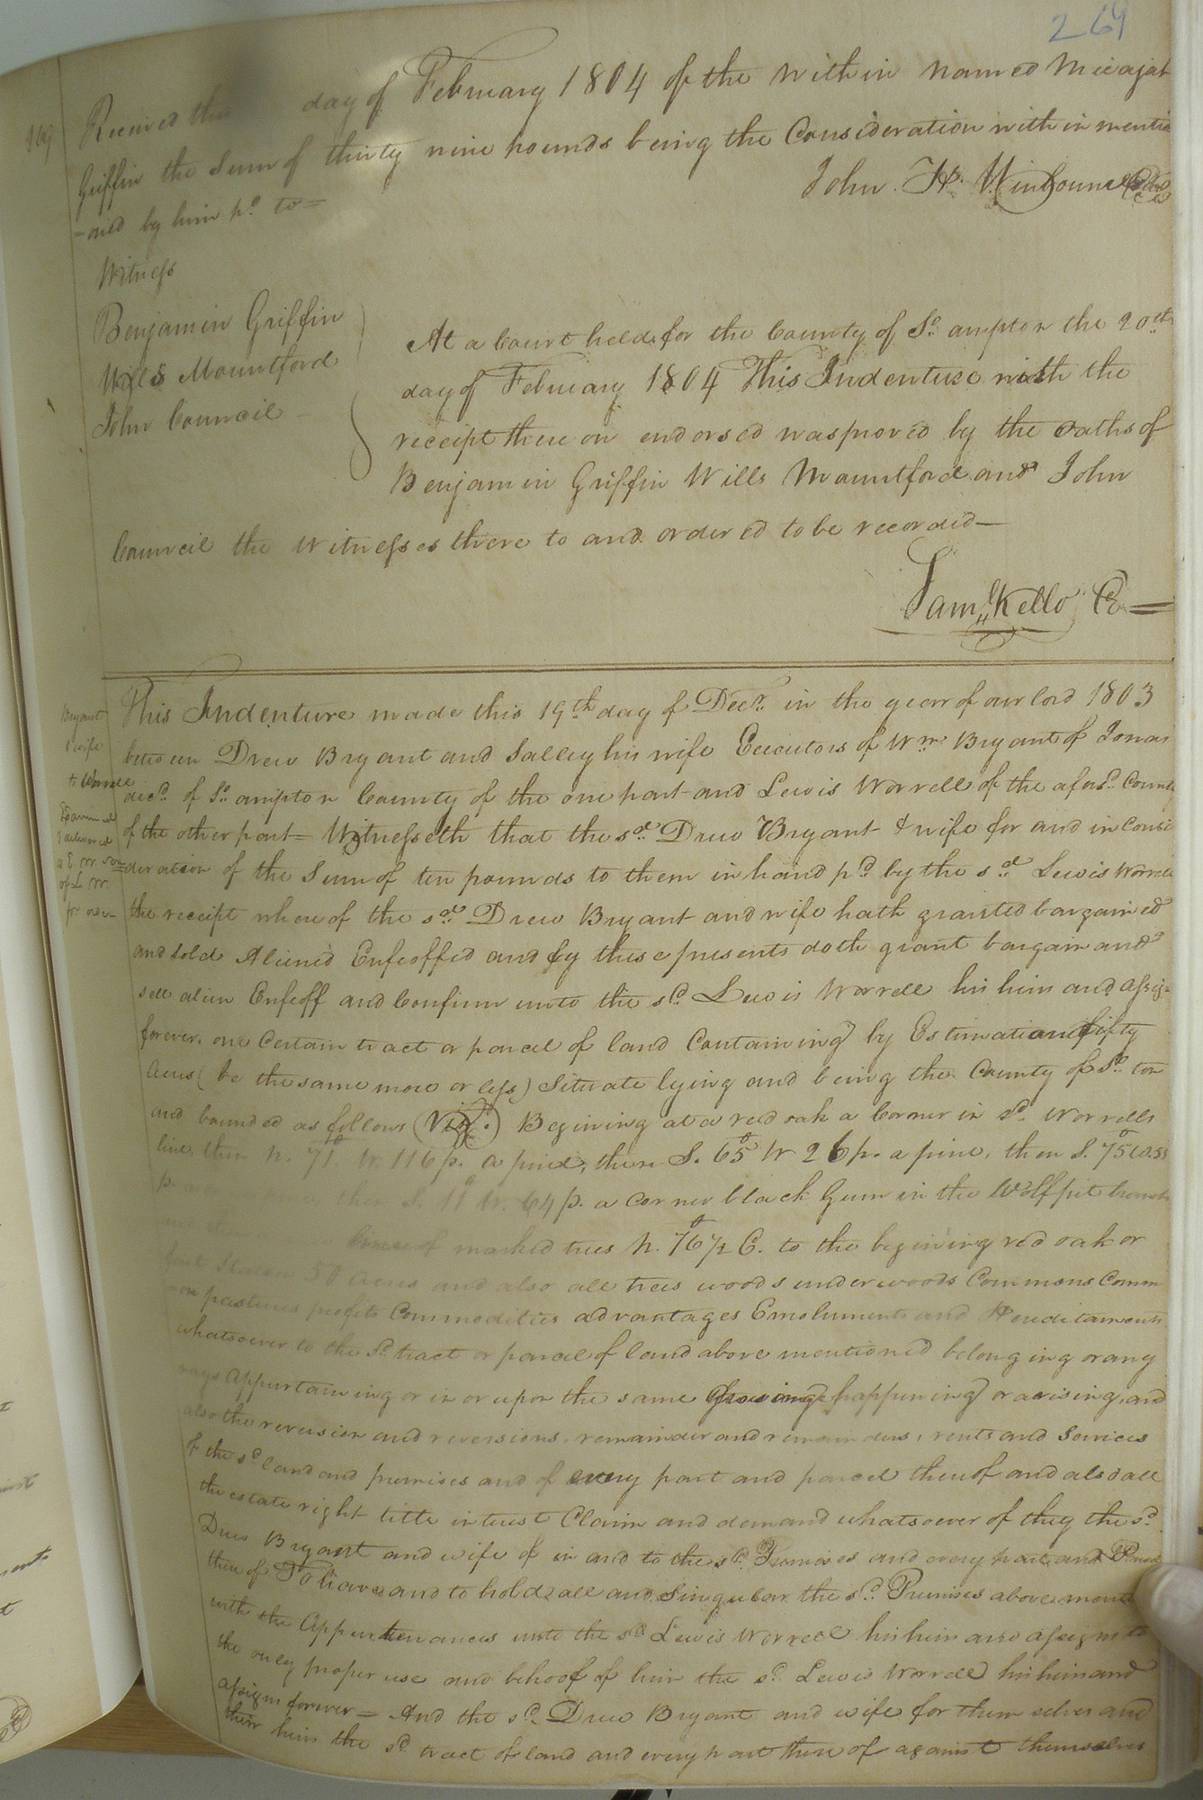 269
Received the day of February 1804 of the within named Micajah
Griffin the Sum of thirty nine pounds being the Consideration within mentio
-oned by him pd. to =
John H.
Witness
Benjamin Griffin
Wills Mountford
John Council
At a Court held for the County of So. ampton the 20th
day of February 1804 This Indenture with the
receipt there on endorsed was proved by the oaths of
Benjamin Griffin Wills Mountford and John
Council the Witnesses there to and ordered to be recorded—
Saml. Kello C
This Indenture made this 19th day of Decr. in the year of our lord 1803
between Drew Bryant and Salley his wife Executors of Wm. Bryant of Jonas
decd. of So. ampton County of the one part and Lewis Worrell of the afosd. County
of the other part = Witnesseth that the sd. Drew Bryant & wife for and in Consi
deration of the Sum of ten pounds to them in hand pd. by the sd. Lewis Worrell
the receipt where of the sd. Drew Bryant and wife hath granted bargained
and sold Aliened Enfeoffed and by these presents doth grant bargain and
sell alien Enfeoff and Confirm unto the sd. Lewis Worrell his heirs and assig
forever, one Certain tract or parcel of land Containing by Estimation fifty
Acres (be the same more or less) Situate lying and being the County of So. ton
and bounded as follows (Viz.) Begining at a red oak a Corner in sd. Worrells
line, then N. 71 W 116 p. a pine, then S. 65 W 26 p. a pine, then S. 75
then S. 11 W. 64 p. a corner black Gum in the Wolfpit branch
of marked trees N. 76 1/2 E. to the begining red oak or
50 Acres and also all trees woods underwoods Commons Comm
on pastures profits Commodities advantages Emoluments and Hereditaments
whatsoever to the sd. tract or parcel of land above mentioned belonging or any
ways appurtaining or in or upon the same growing happening or arising, and
also the reversion and reversions, remainder and remainders, rents and Services
of the sd. land and premises and of every part and parcel thereof and also all
the estate right title interest Claim and demand whatsoever of they the sd.
Drew Bryant and wife of in and to the sd. Premises and every part and
there of To have and to hold all and Singular the sd. Premises above
with the Appurtenances unto the sd. Lewis Worrell his heirs and assigns to
the only proper use and behoof of him the sd. Lewis Worrell his heirs and
assigns forever = And the sd. Drew Bryant and wife for them selves and
their heirs the sd. tract of land and every part there of against themselves
Bryant
& wife
to Worrell